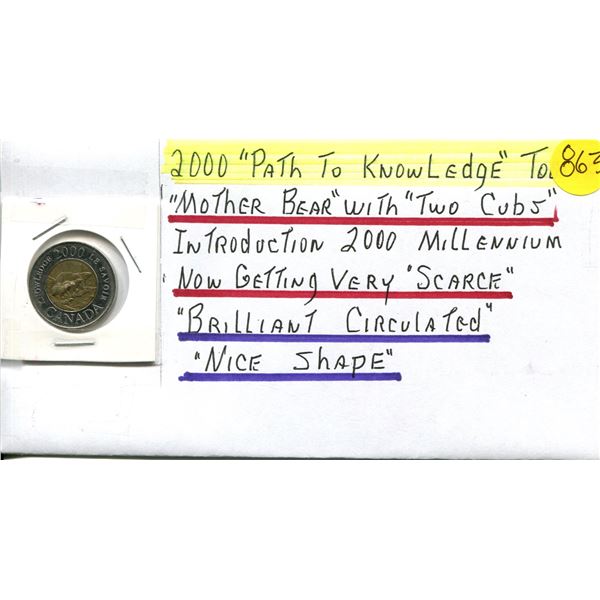 2000 "PATH TO KNOWLEDGE"
863
"MOTHER BEAR" WITH "TWO CUBS"
INTRODUCTION 2000 MILLENNIUM
NOW GETTING VERY "SCARCE"
"BRILLIANT CIRCULATED"
"NICE SHAPE"
KNOWLEDGE 2000 LE SAVOIR
CANADA